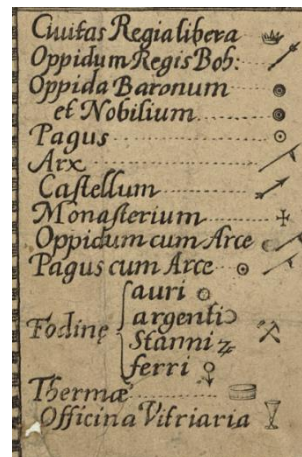 Civitas Regia libera
Oppidum Regis Boh:
Oppida Baronum
et Nobilium
Pagus
Arx
Castellum
Monasterium
Oppidum cum Arce
Pagus cum Arce
Fodinę
auri
argenti
Stanni
ferri
Thermæ
Officina Vitriaria